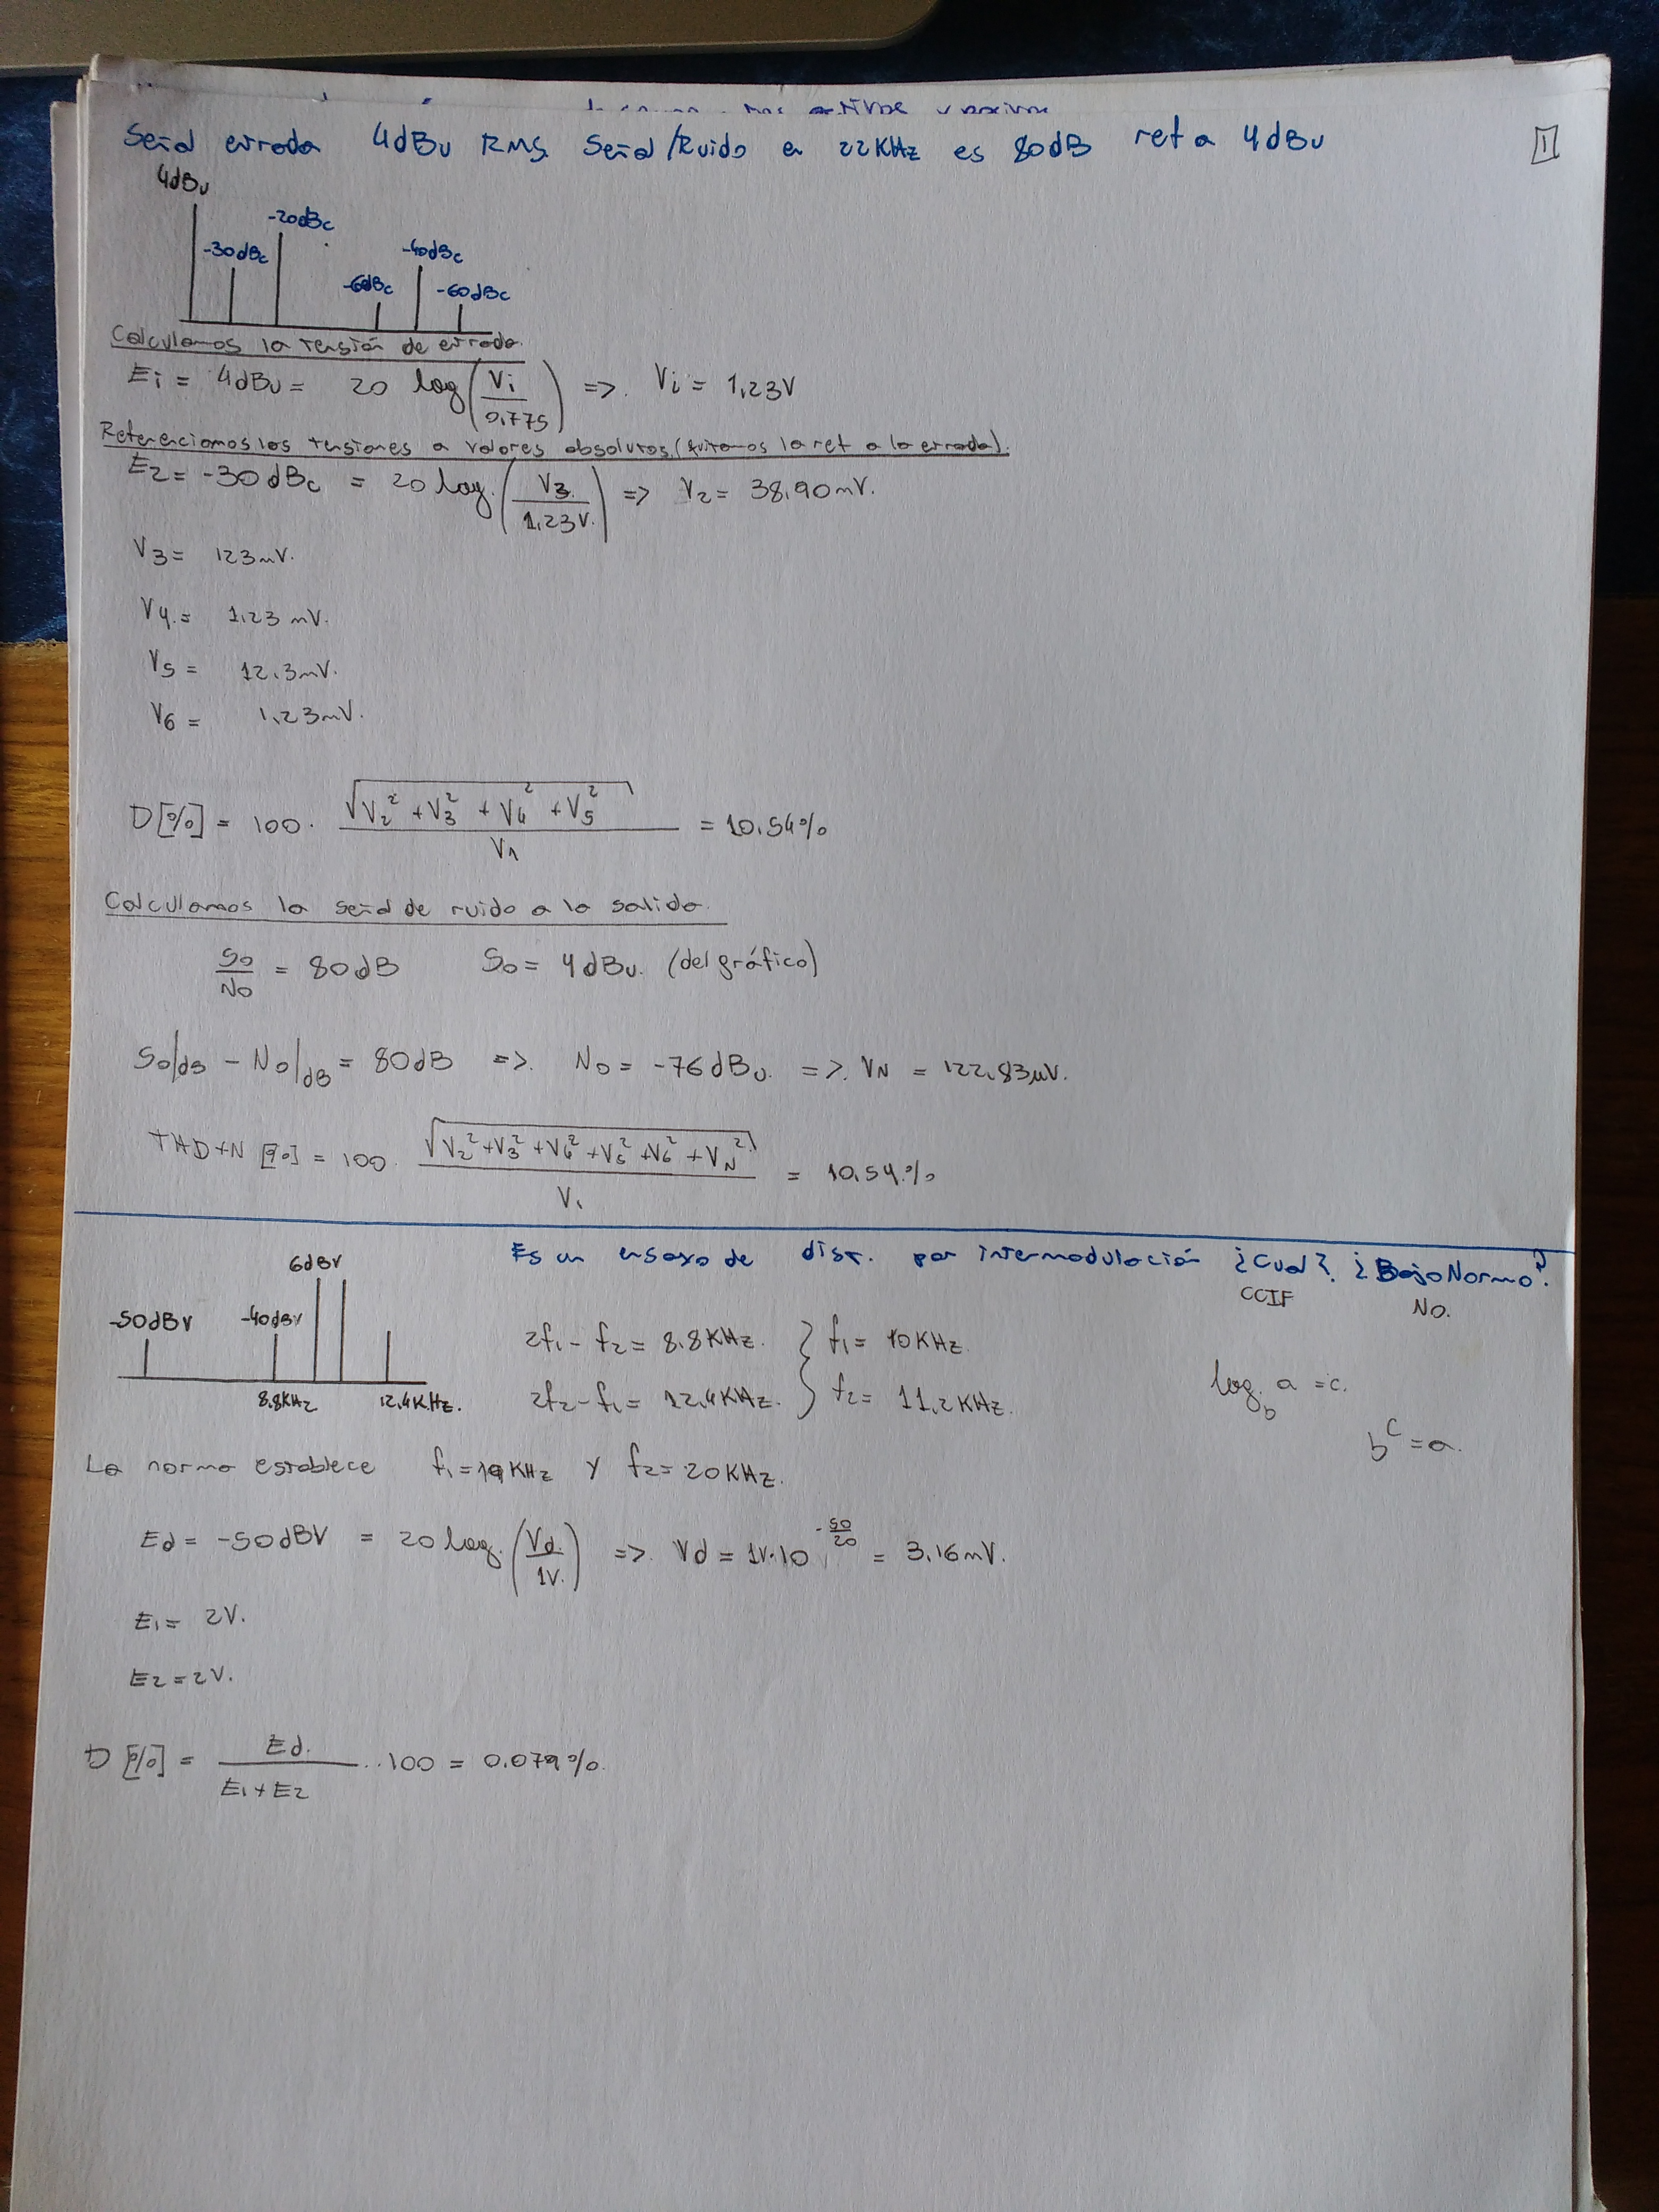 Señal entrada 4dBu RMS. Señal/Ruido en 22KHz es 80dB ref a 4dBu
1
4dBu
-20dBc
-30dBc
-40dBc
-60dBc
-60dBc
Calculamos la tensión de entrada.
Ei = 4dBu = 20 log(Vi/0,775) => Vi = 1,23V
Referenciamos las tensiones a valores absolutos (quitamos la ref a la entrada).
E2 = -30dBc = 20 log.(V3/1,23V.) => V2 = 38,90mV.
V3 = 123mV.
V4 = 1,23 mV.
V5 = 12,3mV.
V6 = 1,23mV.
D[%] = 100 · √(V2² + V3² + V4² + V5²)/V1 = 10,54%
Calculamos la señal de ruido a la salida.
So/No = 80dB So = 4dBu. (del gráfico)
So|dB - No|dB = 80dB => No = -76dBu. => VN = 122,83μV.
THD+N [%] = 100 · √(V2² + V3² + V4² + V5² + V6² + VN²)/V1 = 10,54%
Es un ensayo de dist. por intermodulación ¿Cual? ¿Bajo Norma?
CCIF No.
6dBV
-50dBV -40dBV
8.8KHz 12,4KHz.
2f1 - f2 = 8.8KHz. } f1 = 10KHz.
2f2 - f1 = 12,4KHz. } f2 = 11,2KHz.
log_b a = c.
b^c = a.
La norma establece f1 = 19KHz y f2 = 20KHz.
Ed = -50dBV = 20 log.(Vd/1V.) => Vd = 1V·10^(-50/20) = 3,16mV.
E1 = 2V.
E2 = 2V.
D[%] = Ed./(E1 + E2) · 100 = 0.079%